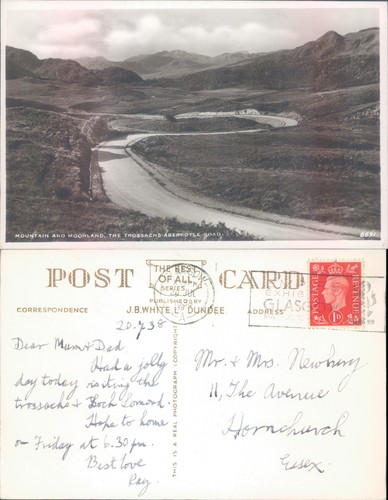 MOUNTAIN AND MOORLAND, THE TROSSACHS-ABERFOYLE ROAD.
POST CARD
THE BEST
OF ALL
SERIES
CORRESPONDENCE
PUBLISHED BY
J.B. WHITE LTD DUNDEE
ADDRESS
POSTAGE
REVENUE
1D
THIS IS A REAL PHOTOGRAPH (COPYRIGHT)
20.7.38
Dear Mum & Dad
Had a jolly
day today visiting the
trossachs & Loch Lomond.
Hope to home
on Friday at 6.30 pm.
Best love
Ray.
Mr. & Mrs. Newbury
11, The Avenue
Hornchurch
Essex.